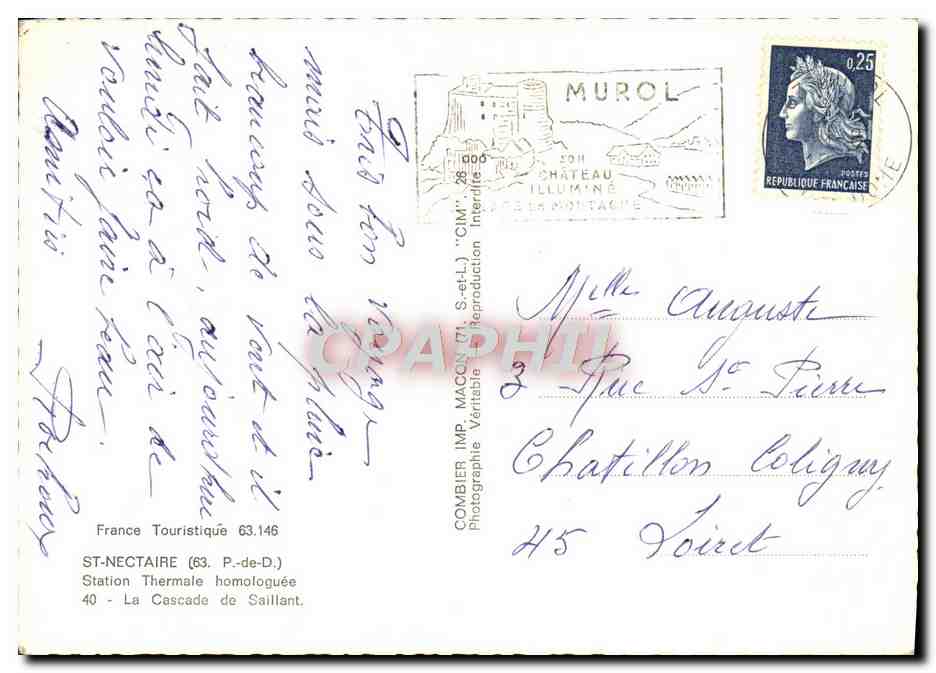 Très bon voyage
mais sous la pluie
beaucoup de vent et il
fait froid, aujourd'hui
lundi ça à l'air de
vouloir faire beau.
Amitiés
France Touristique 63.146
ST-NECTAIRE (63. P.-de-D.)
Station Thermale homologuée
40 - La Cascade de Saillant.
COMBIER IMP. MACON (71. S.-et-L.) "CIM" 26 000
Photographie Véritable - Reproduction Interdite
MUROL
SON
CHÂTEAU
ILLUMINÉ
LA MONTAGNE
0,25
POSTES
REPUBLIQUE FRANÇAISE
Melle Auguste
3 Rue St Pierre
Chatillon Coligny
45 Loiret
CPAPHIL